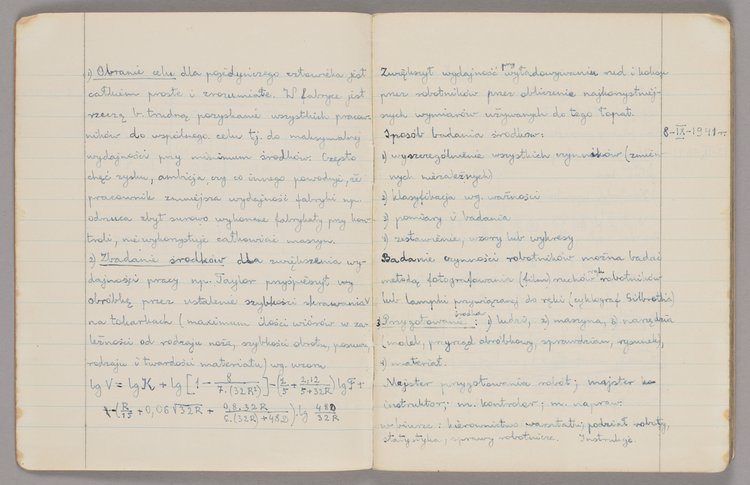 1) Obranie celu dla pojedyńczego człowieka jest
całkiem proste i zrozumiałe. W fabryce jest
rzeczą b. trudną pozyskanie wszystkich pracow-
ników do wspólnego celu tj. do maksymalnej
wydajności przy minimum środków. Często
chęć zysku, ambicja, czy co innego powoduje, że
pracownik zmniejsza wydajność fabryki np.
odrzuca zbyt surowo wykonane fabrykaty przy kon-
troli, nie wykorzystuje całkowicie maszyn.
2) Zbadanie środków dla zwiększenia wy-
dajności pracy np. Taylor przyśpieszył wy
obróbkę przez ustalenie szybkości skrawania V
na tokarkach (maximum ilości wiórów w za-
leżności od rodzaju noża, szybkości obrotu, posuwu,
rodzaju i twardości materiału) wg. wzoru
lg V = lg K + lg [1 - 8/7.(32R²)] - (2/5 + 2.12/5+32R) lg F +
- (R/15 + 0,06 √32R + 0,8.32R/6.(32R)+48D) . lg 48D/32R
Zwiększył wydajność przy wyładowywaniu rud i koksu
przez robotników przez obliczenie najkorzystniej-
szych wymiarów używanych do tego łopat.
Sposób badania środków: 8-IX-1941 r.
1) wyszczególnienie wszystkich czynników (zmien-
nych niezależnych)
2) klasyfikacja wg. ważności
3) pomiary i badania
4) zestawienie, wzory lub wykresy
Badanie czynności robotników można badać
metodą fotografowania (film) ruchów ręki robotników
lub lampki przywiązanej do ręki (cyklograf Gilbretha)
3. Przygotowanie środka: 1) ludzi, 2) maszyna, 3) narzędzia
(model, przyrząd obróbkowy, sprawdzian, rysunek),
4) materiał.
Majster przygotowania robót; majster
instruktor; m. kontroler; m. napraw.
w biurze: kierownictwo warsztatu; podział roboty,
statystyka, sprawy robotnicze. Instrukcje.